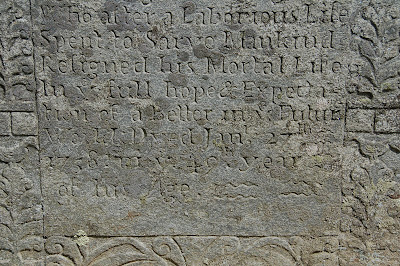 Who after a Laborious Life
Spent to Sarve Mankind
Resigned His Mortal Life
In yᵉ full hope & Expecta-
tion of a Better in yᵉ Future
World. Dyed Janʳ
1736 in yᵉ 46ᵗʰ year
of his Age